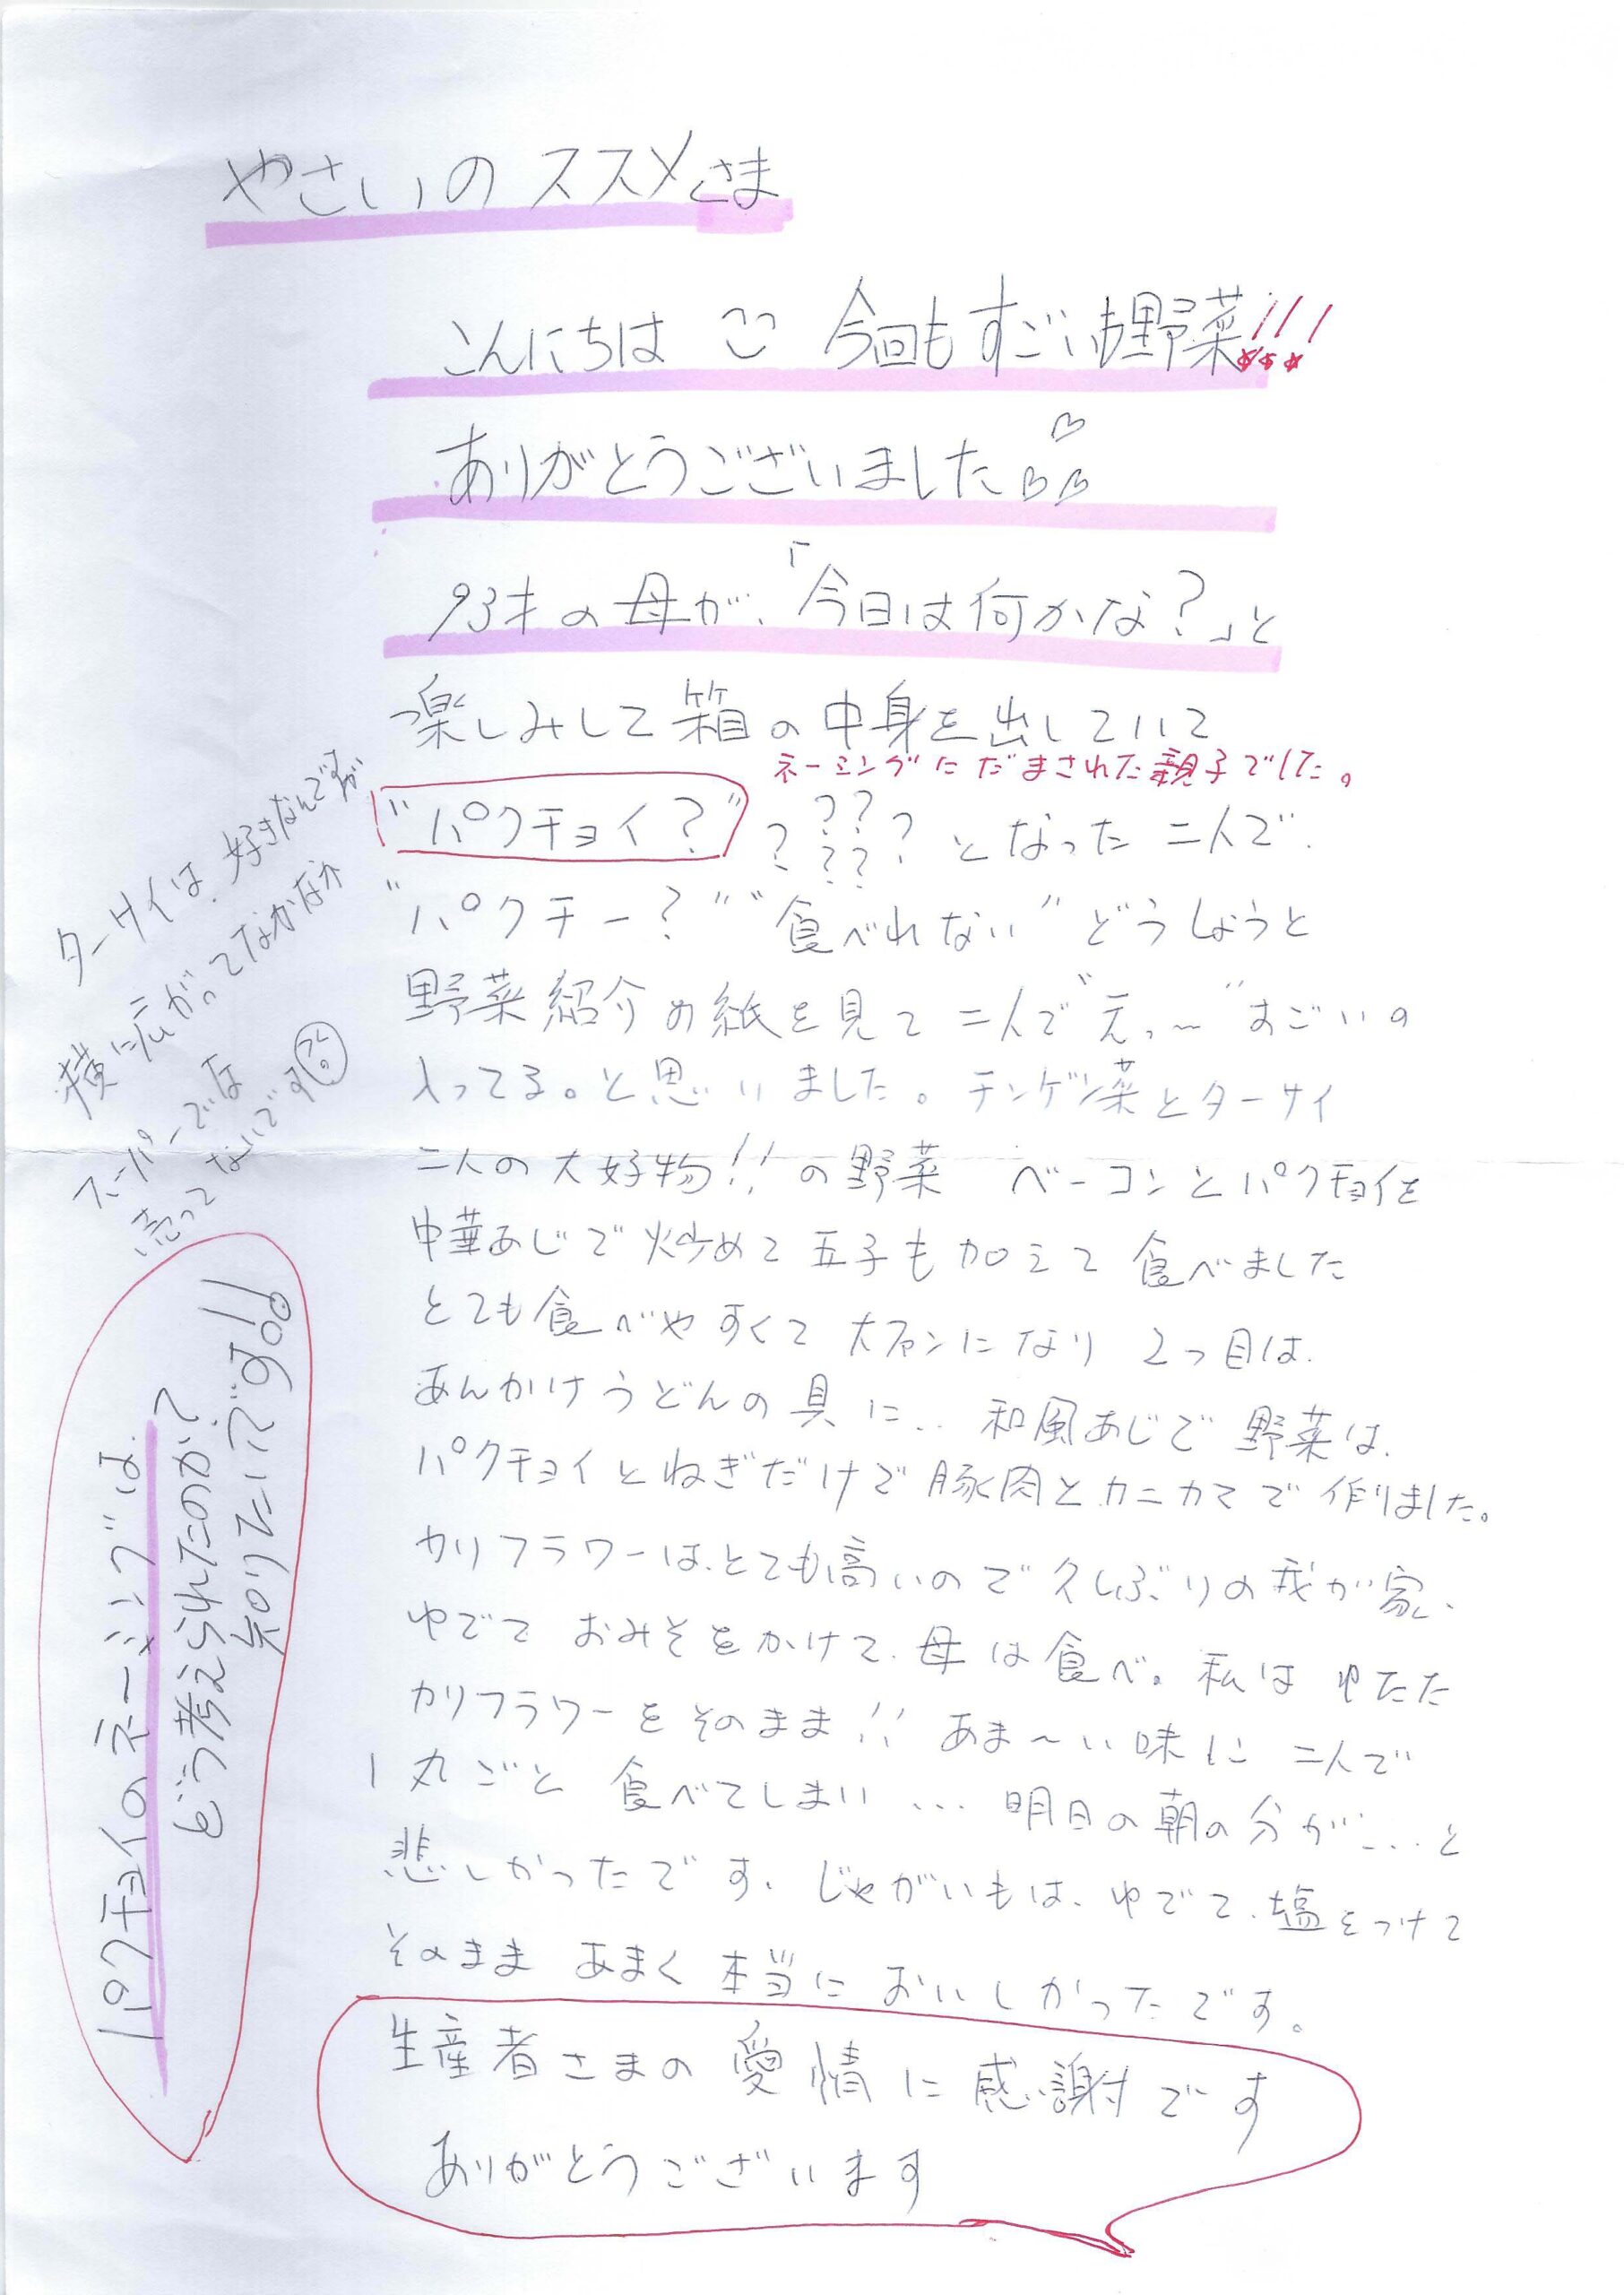 やさいのススメさま
こんにちは 今回もすごい野菜!!!
ありがとうございました♡♡♡
93才の母が、「今日は何かな?」と
楽しみして箱の中身を出していて
ネーミングにだまされた親子でした。
"パクチョイ?" ?????? となった二人で、
"パクチー?""食べれない"どうしようと
野菜紹介の紙を見て二人で"えっ〜"すごいの
入ってる。と思いました。チンゲン菜とターサイ
二人の大好物!!の野菜 ベーコンとパクチョイを
中華あじで炒めて玉子も加えて食べました
とても食べやすくて大ファンになり 2つ目は、
あんかけうどんの具に.. 和風あじで野菜は、
パクチョイとねぎだけで豚肉とカニカマで作りました。
カリフラワーは、とても高いので久しぶりの我が家、
ゆでておみそをかけて、母は食べ。私はゆでた
カリフラワーをそのまま!! あま〜い味に二人で
1丸ごと食べてしまい... 明日の朝の分が...と
悲しかったです、じゃがいもは、ゆでて、塩をつけて
そのままあまく本当においしかったです。
生産者さまの愛情に感謝です
ありがとうございます
ターサイは、好きなんですが、
横に広がってなかなか
スーパーでは
売ってないです
パクチョイのネーミングは、
どう考えられたのか?
知りたいです!!